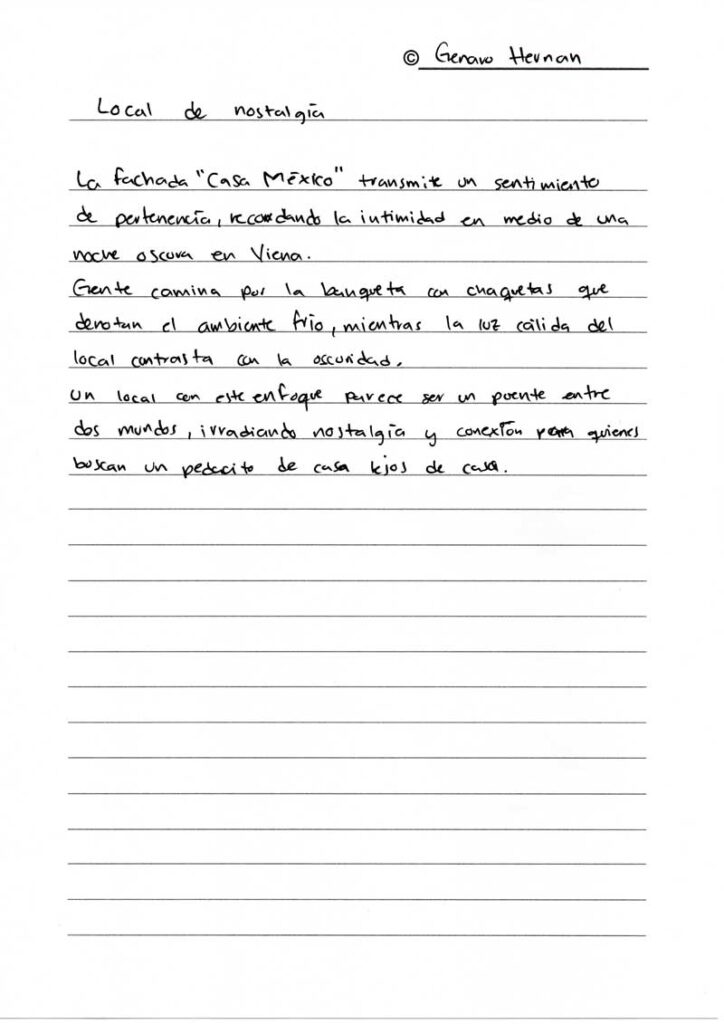 © Genaro Hernan
Local de nostalgía
La fachada "Casa México" transmite un sentimiento
de pertenencía, recordando la intimidad en medio de una
noche oscura en Viena.
Gente camina por la banqueta con chaquetas que
denotan el ambiente frío, mientras la luz cálida del
local contrasta con la oscuridad.
Un local con este enfoque parece ser un puente entre
dos mundos, irradiando nostalgía y conexión para quienes
buscan un pedacito de casa lejos de casa.